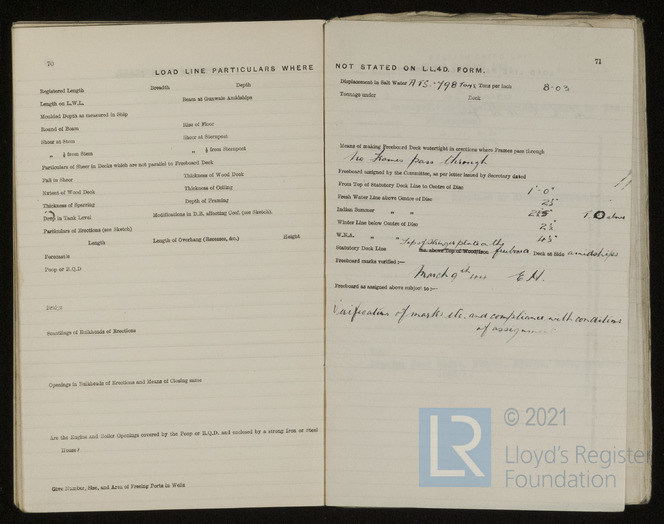 70
LOAD LINE PARTICULARS WHERE
Registered Length Breadth Depth
Length on L.W.L. Beam at Gunwale Amidships
Moulded Depth as measured in Ship
Round of Beam Rise of Floor
Sheer at Stem Sheer at Sternpost
" ⅛ from Stem " ⅛ from Sternpost
Particulars of Sheer in Decks which are not parallel to Freeboard Deck
Fall in Sheer Thickness of Wood Deck
Extent of Wood Deck Thickness of Ceiling
Thickness of Sparring Depth of Framing
Drop in Tank Level Modifications in D.B. affecting Coef. (see Sketch).
Particulars of Erections (see Sketch)
Length Length of Overhang (Recesses, &c.) Height
Forecastle
Poop or R.Q.D
Bridge
Scantlings of Bulkheads of Erections
Openings in Bulkheads of Erections and Means of Closing same
Are the Engine and Boiler Openings covered by the Poop or R.Q.D. and enclosed by a strong Iron or Steel
House?
Give Number, Size, and Area of Freeing Ports in Wells
71
NOT STATED ON LL4D. FORM.
Displacement in Salt Water 798 Tons Tons per inch 8.03
Tonnage under Deck
Means of making Freeboard Deck watertight in erections where Frames pass through
No Frames pass through
Freeboard assigned by the Committee, as per letter issued by Secretary dated
From Top of Statutory Deck Line to Centre of Disc 1'-0"
Fresh Water Line above Centre of Disc
Indian Summer " " above
Winter Line below Centre of Disc
W.N.A. " "
Statutory Deck Line Top of Stringer plate on the freeboard Deck at Side amidships
Freeboard marks verified :—
March 9th E.H.
Freeboard as assigned above subject to :—
Verification of marks etc. and compliance with conditions
of
LR
© 2021
Lloyd's Register
Foundation